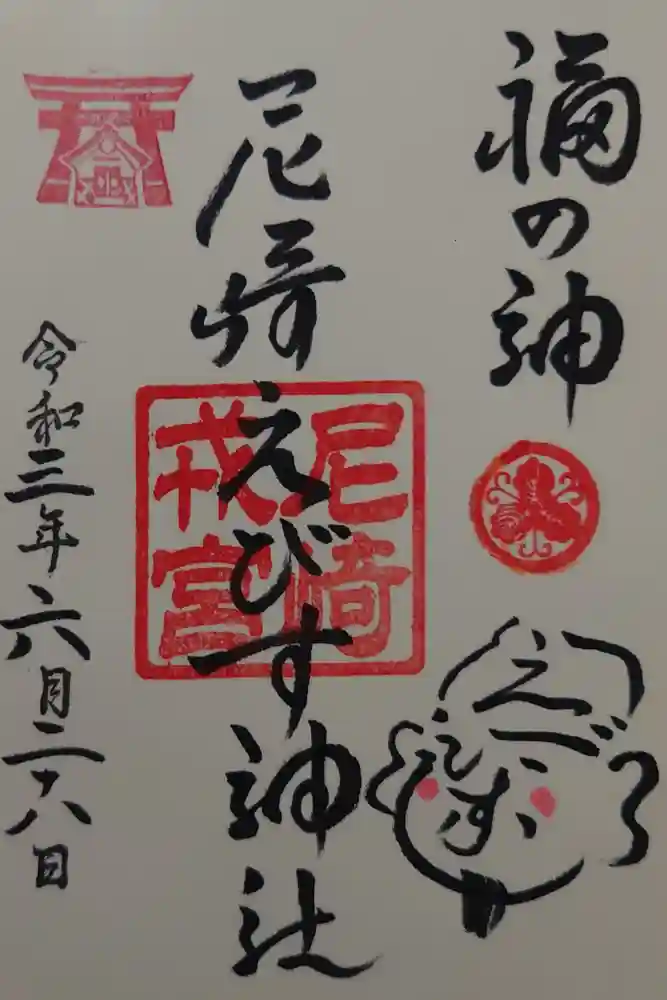 福の神
えびす
尼崎えびす神社
尼崎
戎宮
令和三年六月二十八日